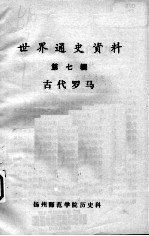 世界通史資料
第七編
古代罗马
扬州師范学院历史科